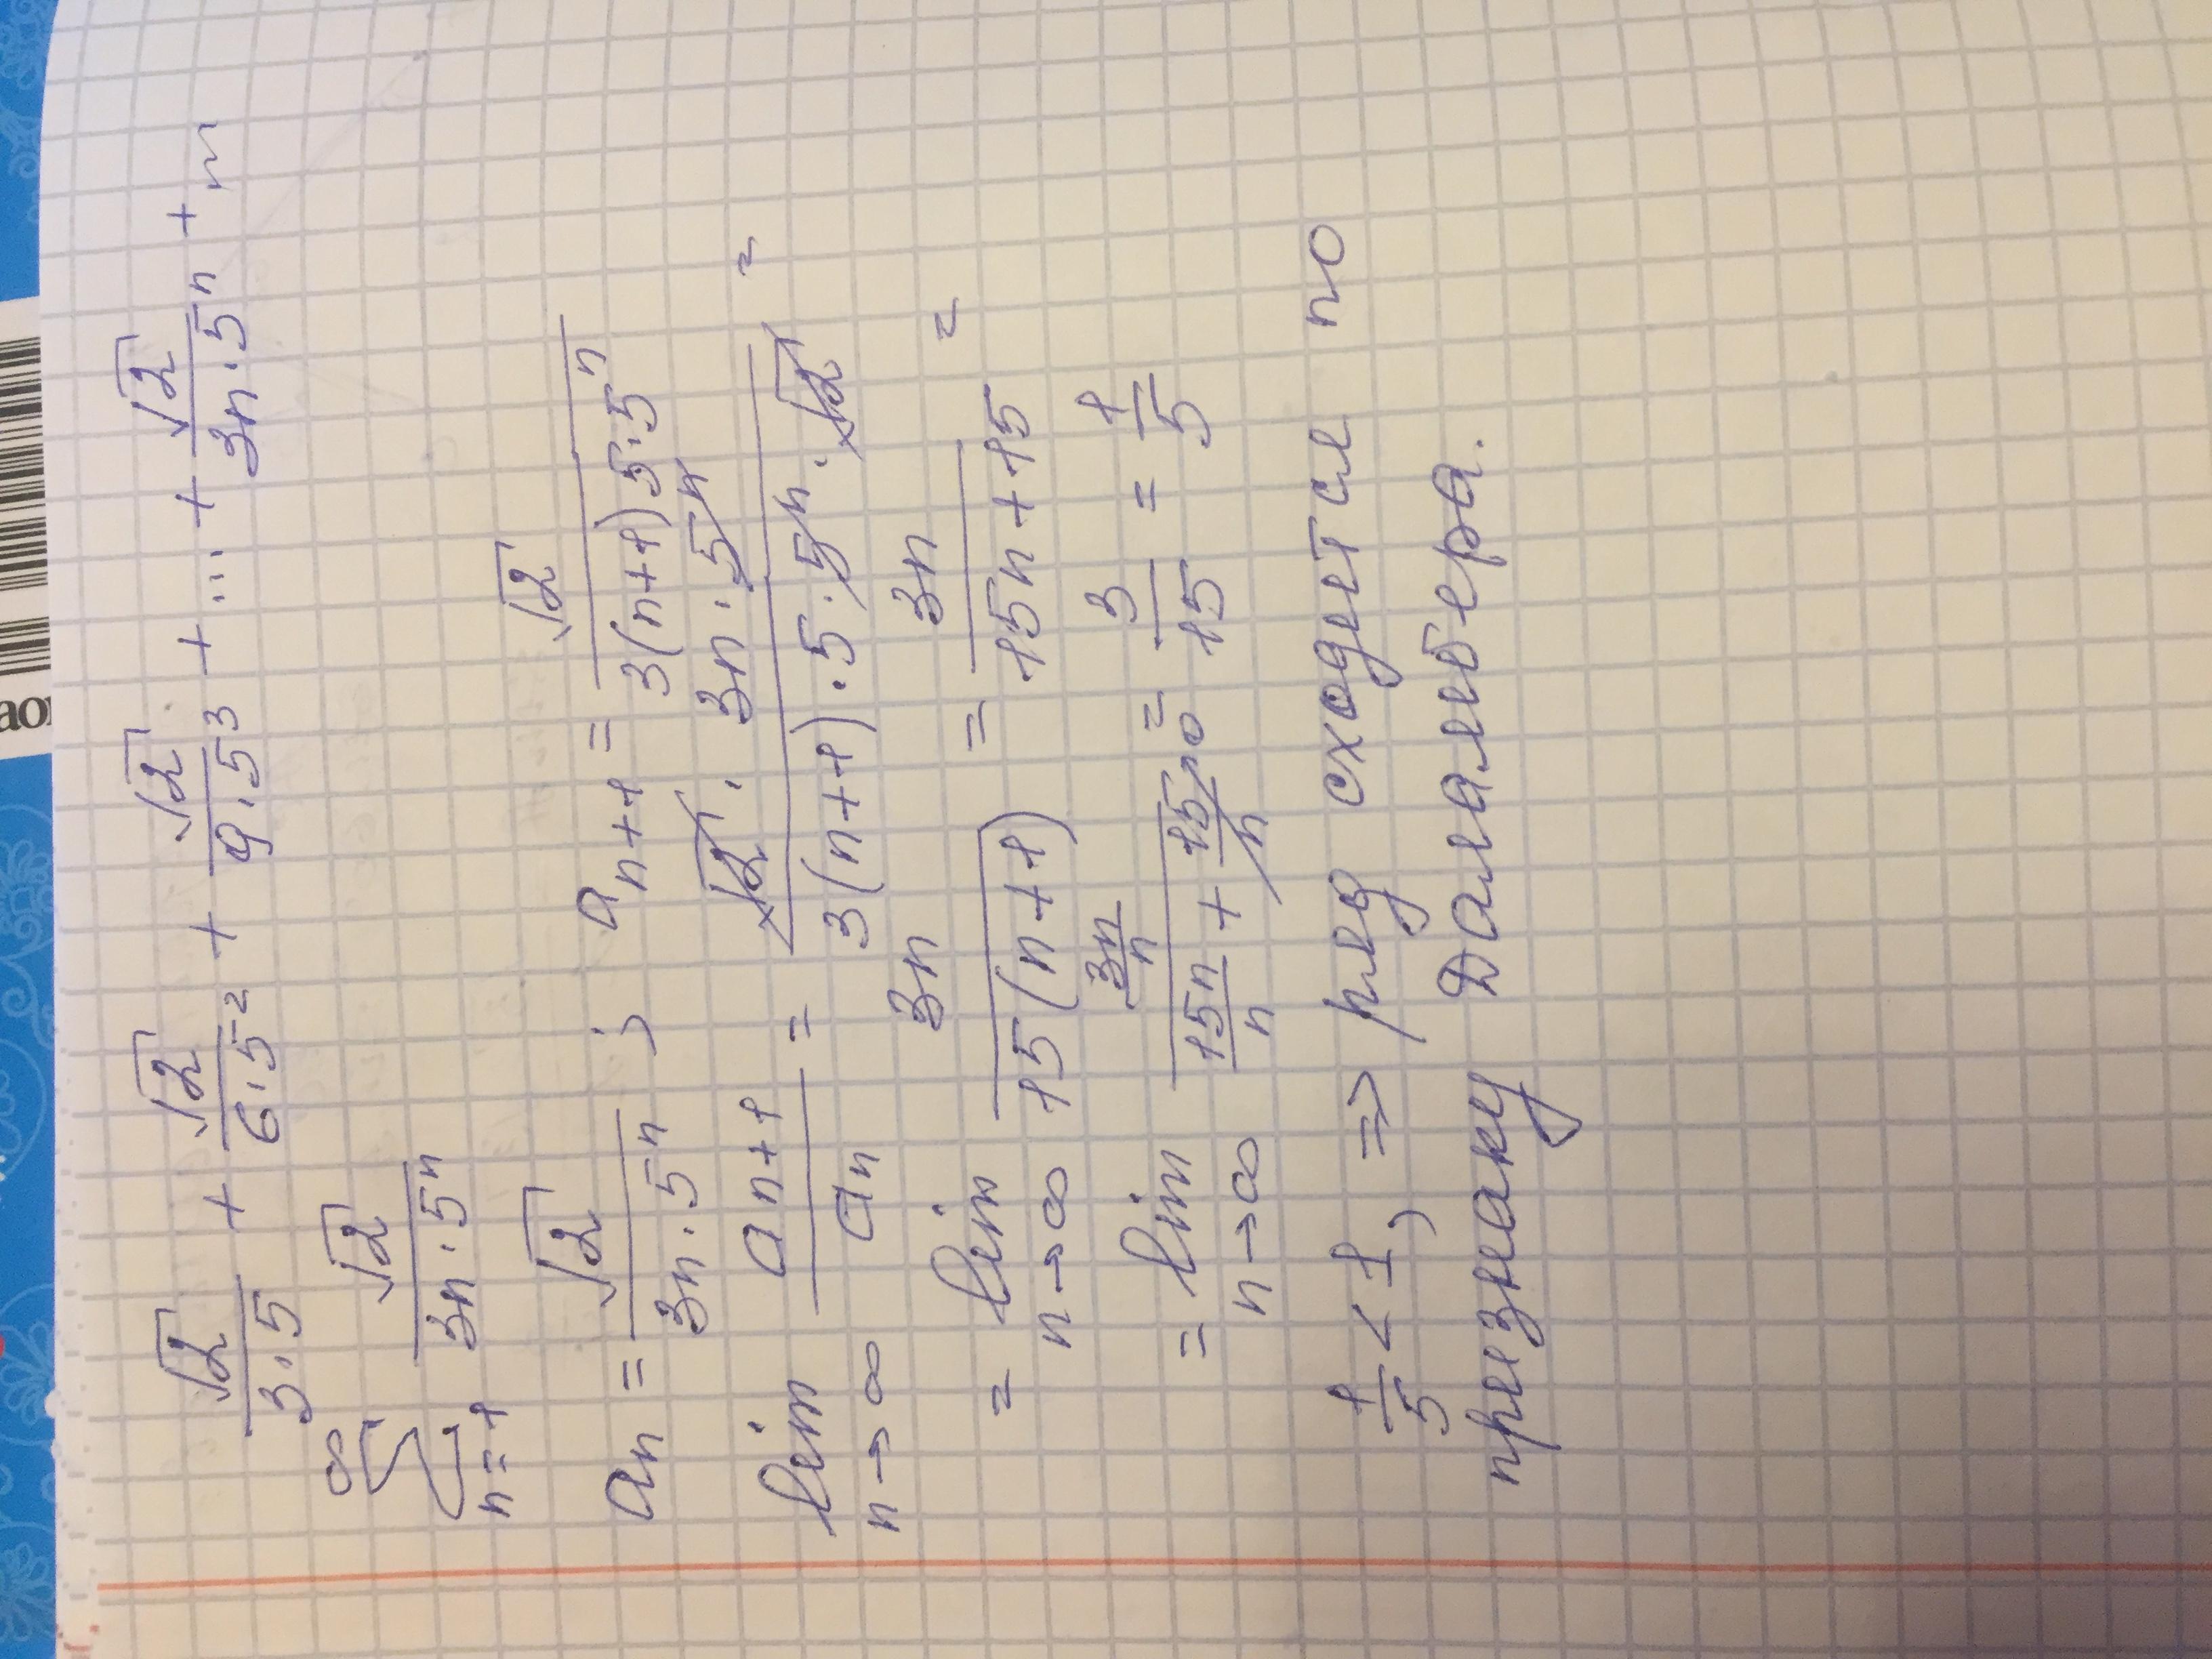 √2/(3·5) + √2/(6·5²) + √2/(9·5³) + ... + √2/(3n·5ⁿ) + ...
∞ Σ n=1 √2/(3n·5ⁿ)
aₙ = √2/(3n·5ⁿ) ; aₙ₊₁ = √2/(3(n+1)5·5ⁿ)
lim n→∞ aₙ₊₁/aₙ = (√2 · 3n · 5ⁿ)/(3(n+1)·5·5ⁿ·√2) =
= lim n→∞ 3n/(15(n+1)) = 3n/(15n+15) =
= lim n→∞ (3n/n)/(15n/n + 15/n →0) = 3/15 = 1/5
1/5 < 1, => ряд сходится по
признаку Даламбера.